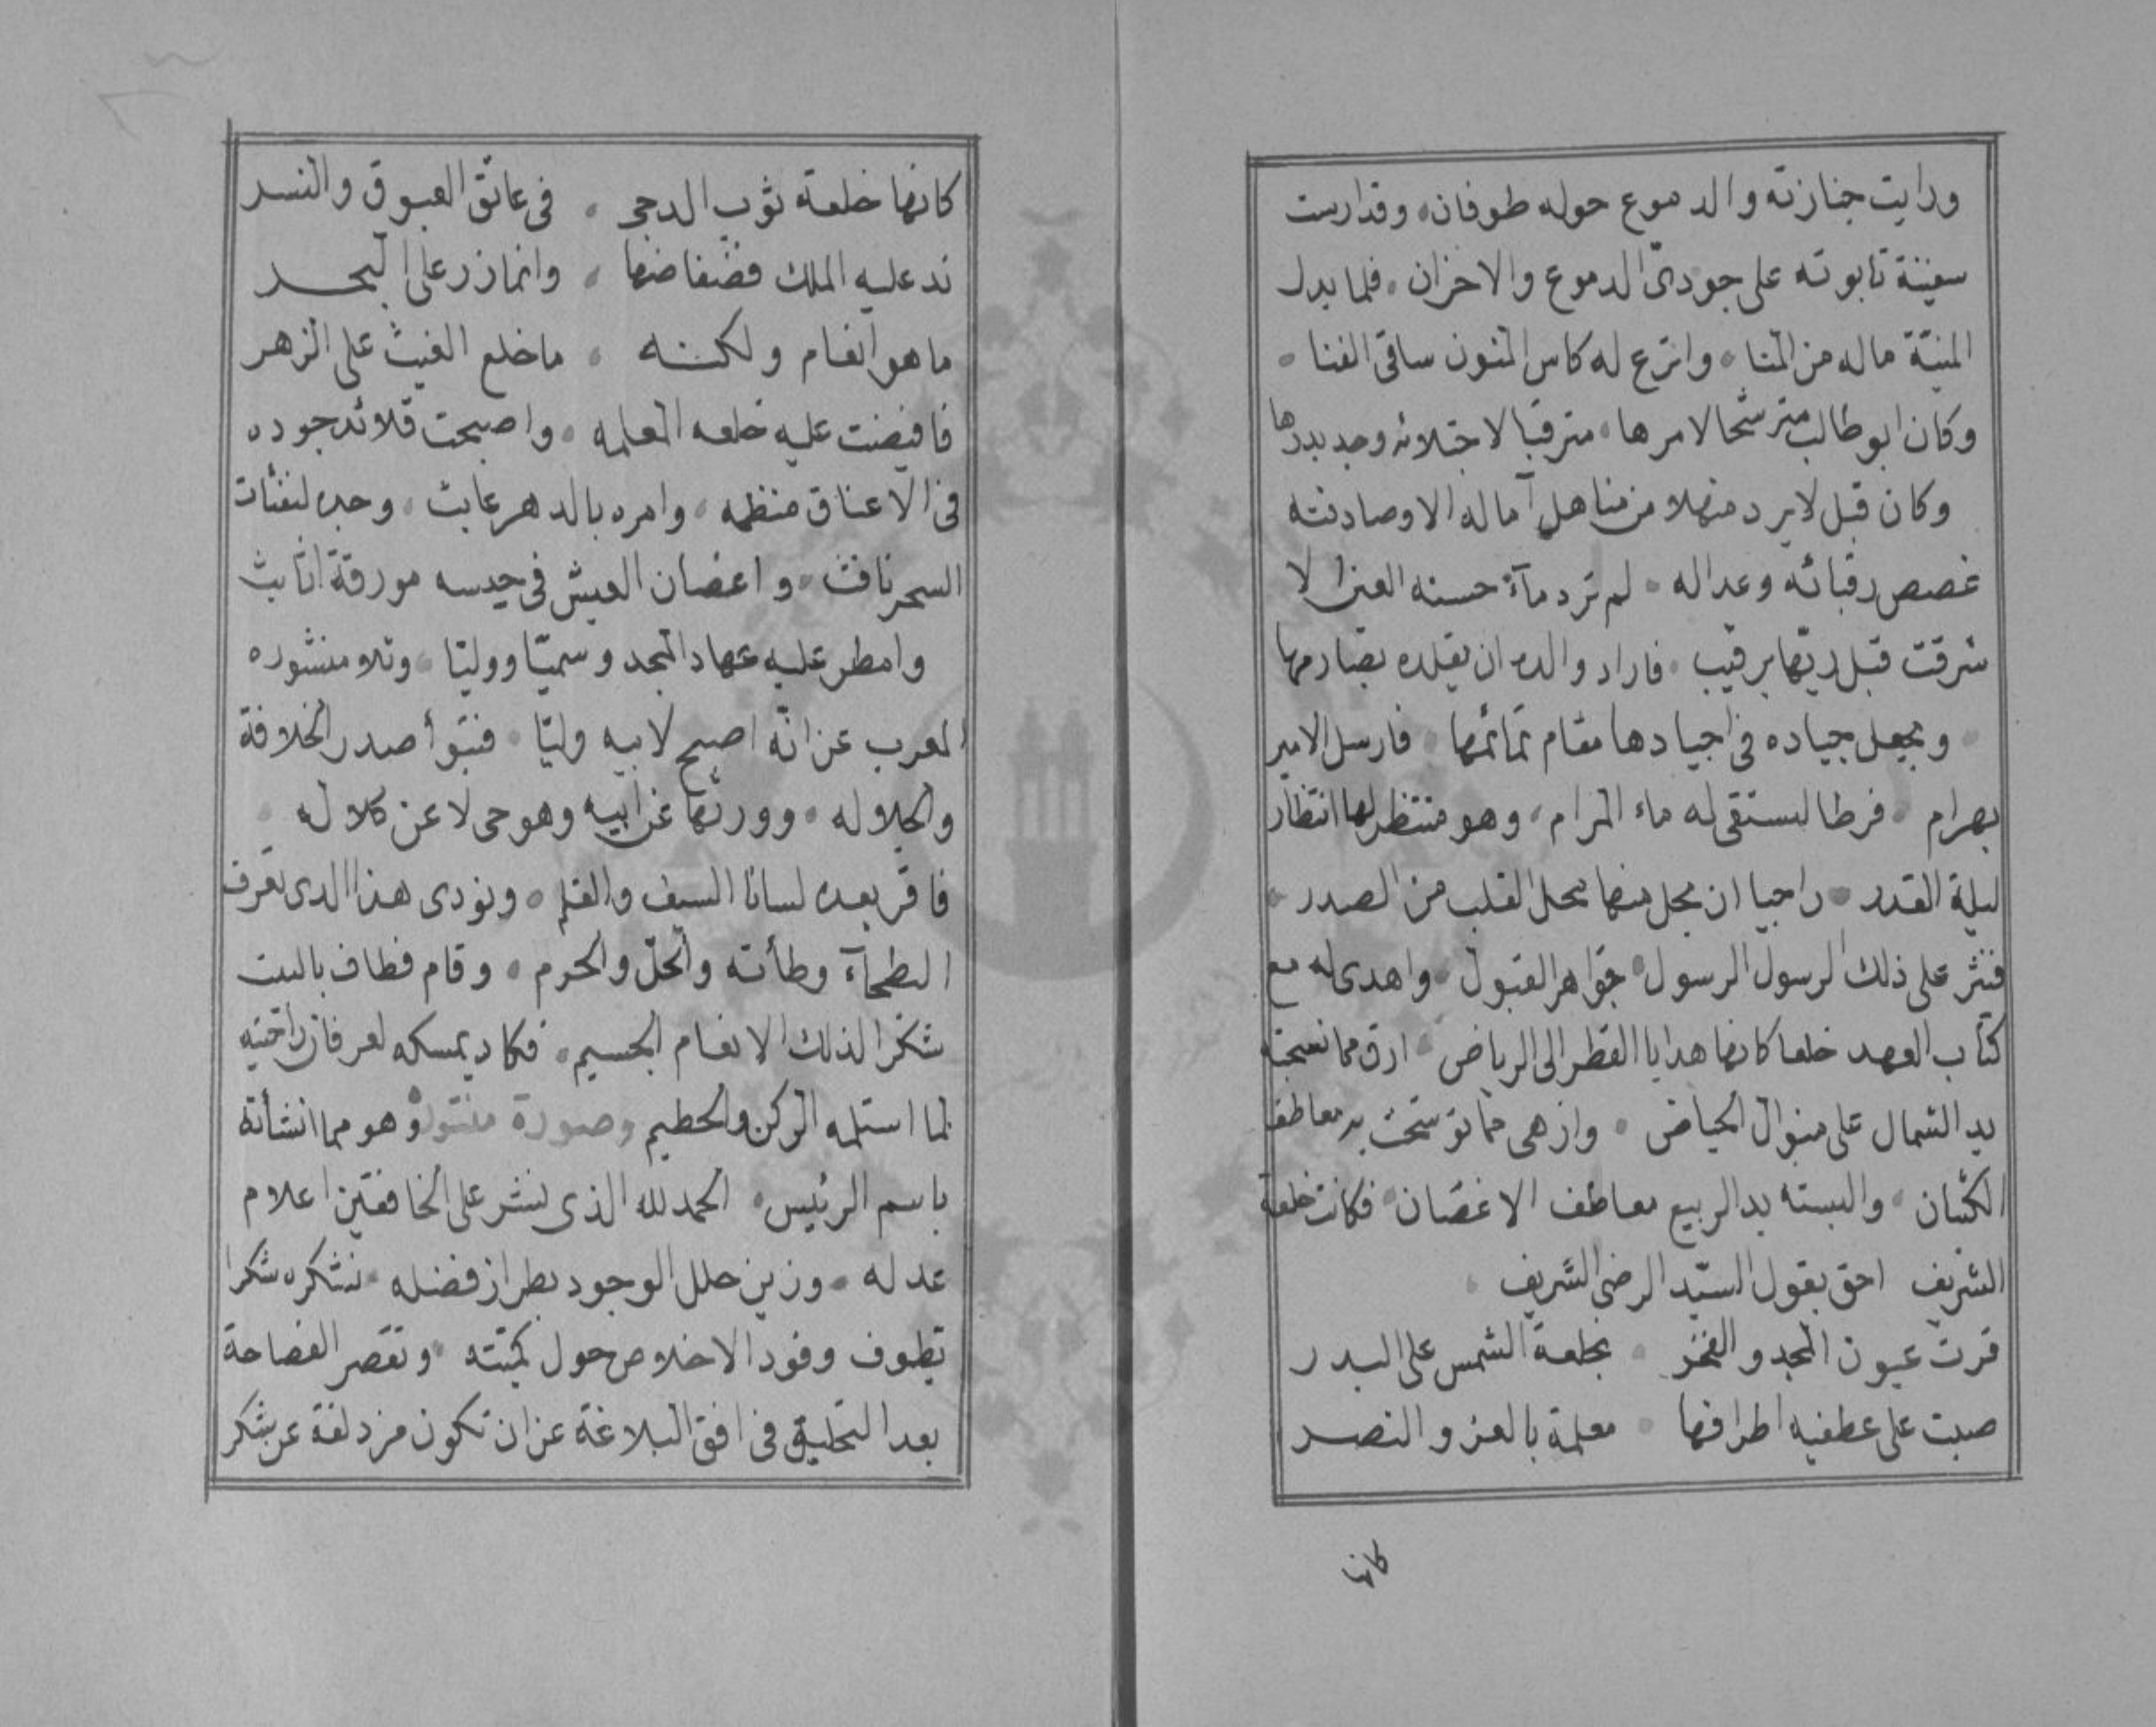 ورايت جنازته والدموع حوله طوفان، وقد ارست
سفينة تابوته على جودىّ الدموع والاحزان، فلما بدل
المنيّة ماله من المنا، واترع له كاس المنون ساقى الفنا،
وكان ابو طالب مترشحا لامرها، مترقبا لاجتلائه وجه بدرها
وكان قبل لا يرد منهلا من مناهل آماله الا وصادفته
غصص رقبائه وعداله، لم ترد مآء حسنه العين الا
شرقت قبل ريّها برقيب، فاراد والده ان يقلده بصارمها
، ويجعل جياده فى اجيادها مقام تمائمها، فارسل الامير
بهرام، فرطا ليستقى له ماء المرام، وهو منتظر لها انتظار
ليلة القدر، راجيا ان يحل منها محل القلب من الصدر،
فنثر على ذلك الرسول الرسول، جواهر القبول، واهدى له مع
كتاب العهد خلعا كانها هدايا القطر الى الرياض، ارق مما نسجته
يد الشمال على منوال الحياض، وازهى مما توشحت به معاطف
الكثبان، والبسته يد الربيع معاطف الاغصان، فكانت خلعة
الشريف احق بقول السيّد الرضى الشريف،
قرت عيون المجد والفخر، بخلعة الشمس على البدر
صبت على عطفيه اطرافها، معلمة بالعز والنصر
كانها
كانها خلعة ثوب الدجى، فى عاتق العيوق والنسر
زر عليه الملك فضفاضها، وانما زر على البحر
ما هو انعام ولكنه، ما خلع الغيث على الزهر
فافيضت عليه خلعه المعلمه، واصبحت قلائد جوده
فى الاعناق منظمه، وامره بالدهر عابث، وجده لنفثات
السحر نافث، واغصان العيش فى مورقة اثايث
وامطر عليه عهاد المجد وسميّا ووليّا، وتلا منشوره
المعرب عن انّه اصبح لابيه وليّا، فتبوأ صدر الخلافة
والجلاله، وورثها عن ابيه وهو حى لا عن كلاله،
فاقر بعده لسانا السيف والقلم، ونودى هذا الذى تعرف
البطحآء وطأته والحلّ والحرم، وقام فطاف بالبيت
شكرا لذلك الانعام الجسيم، فكاد يمسكه لعرفان راحتيه
لما استلمه الركن والحطيم وصورة منشوره وهو مما انشأته
باسم الرئيس، الحمد لله الذى نشر على الخافقين اعلام
عدله، وزين حلل الوجود بطراز فضله، نشكره شكرا
تطوف وفود الاخلاص حول كعبته، وتقصر الفصاحة
بعد التحليق فى افق البلاغة عن ان تكون مزدلفة عن شكر